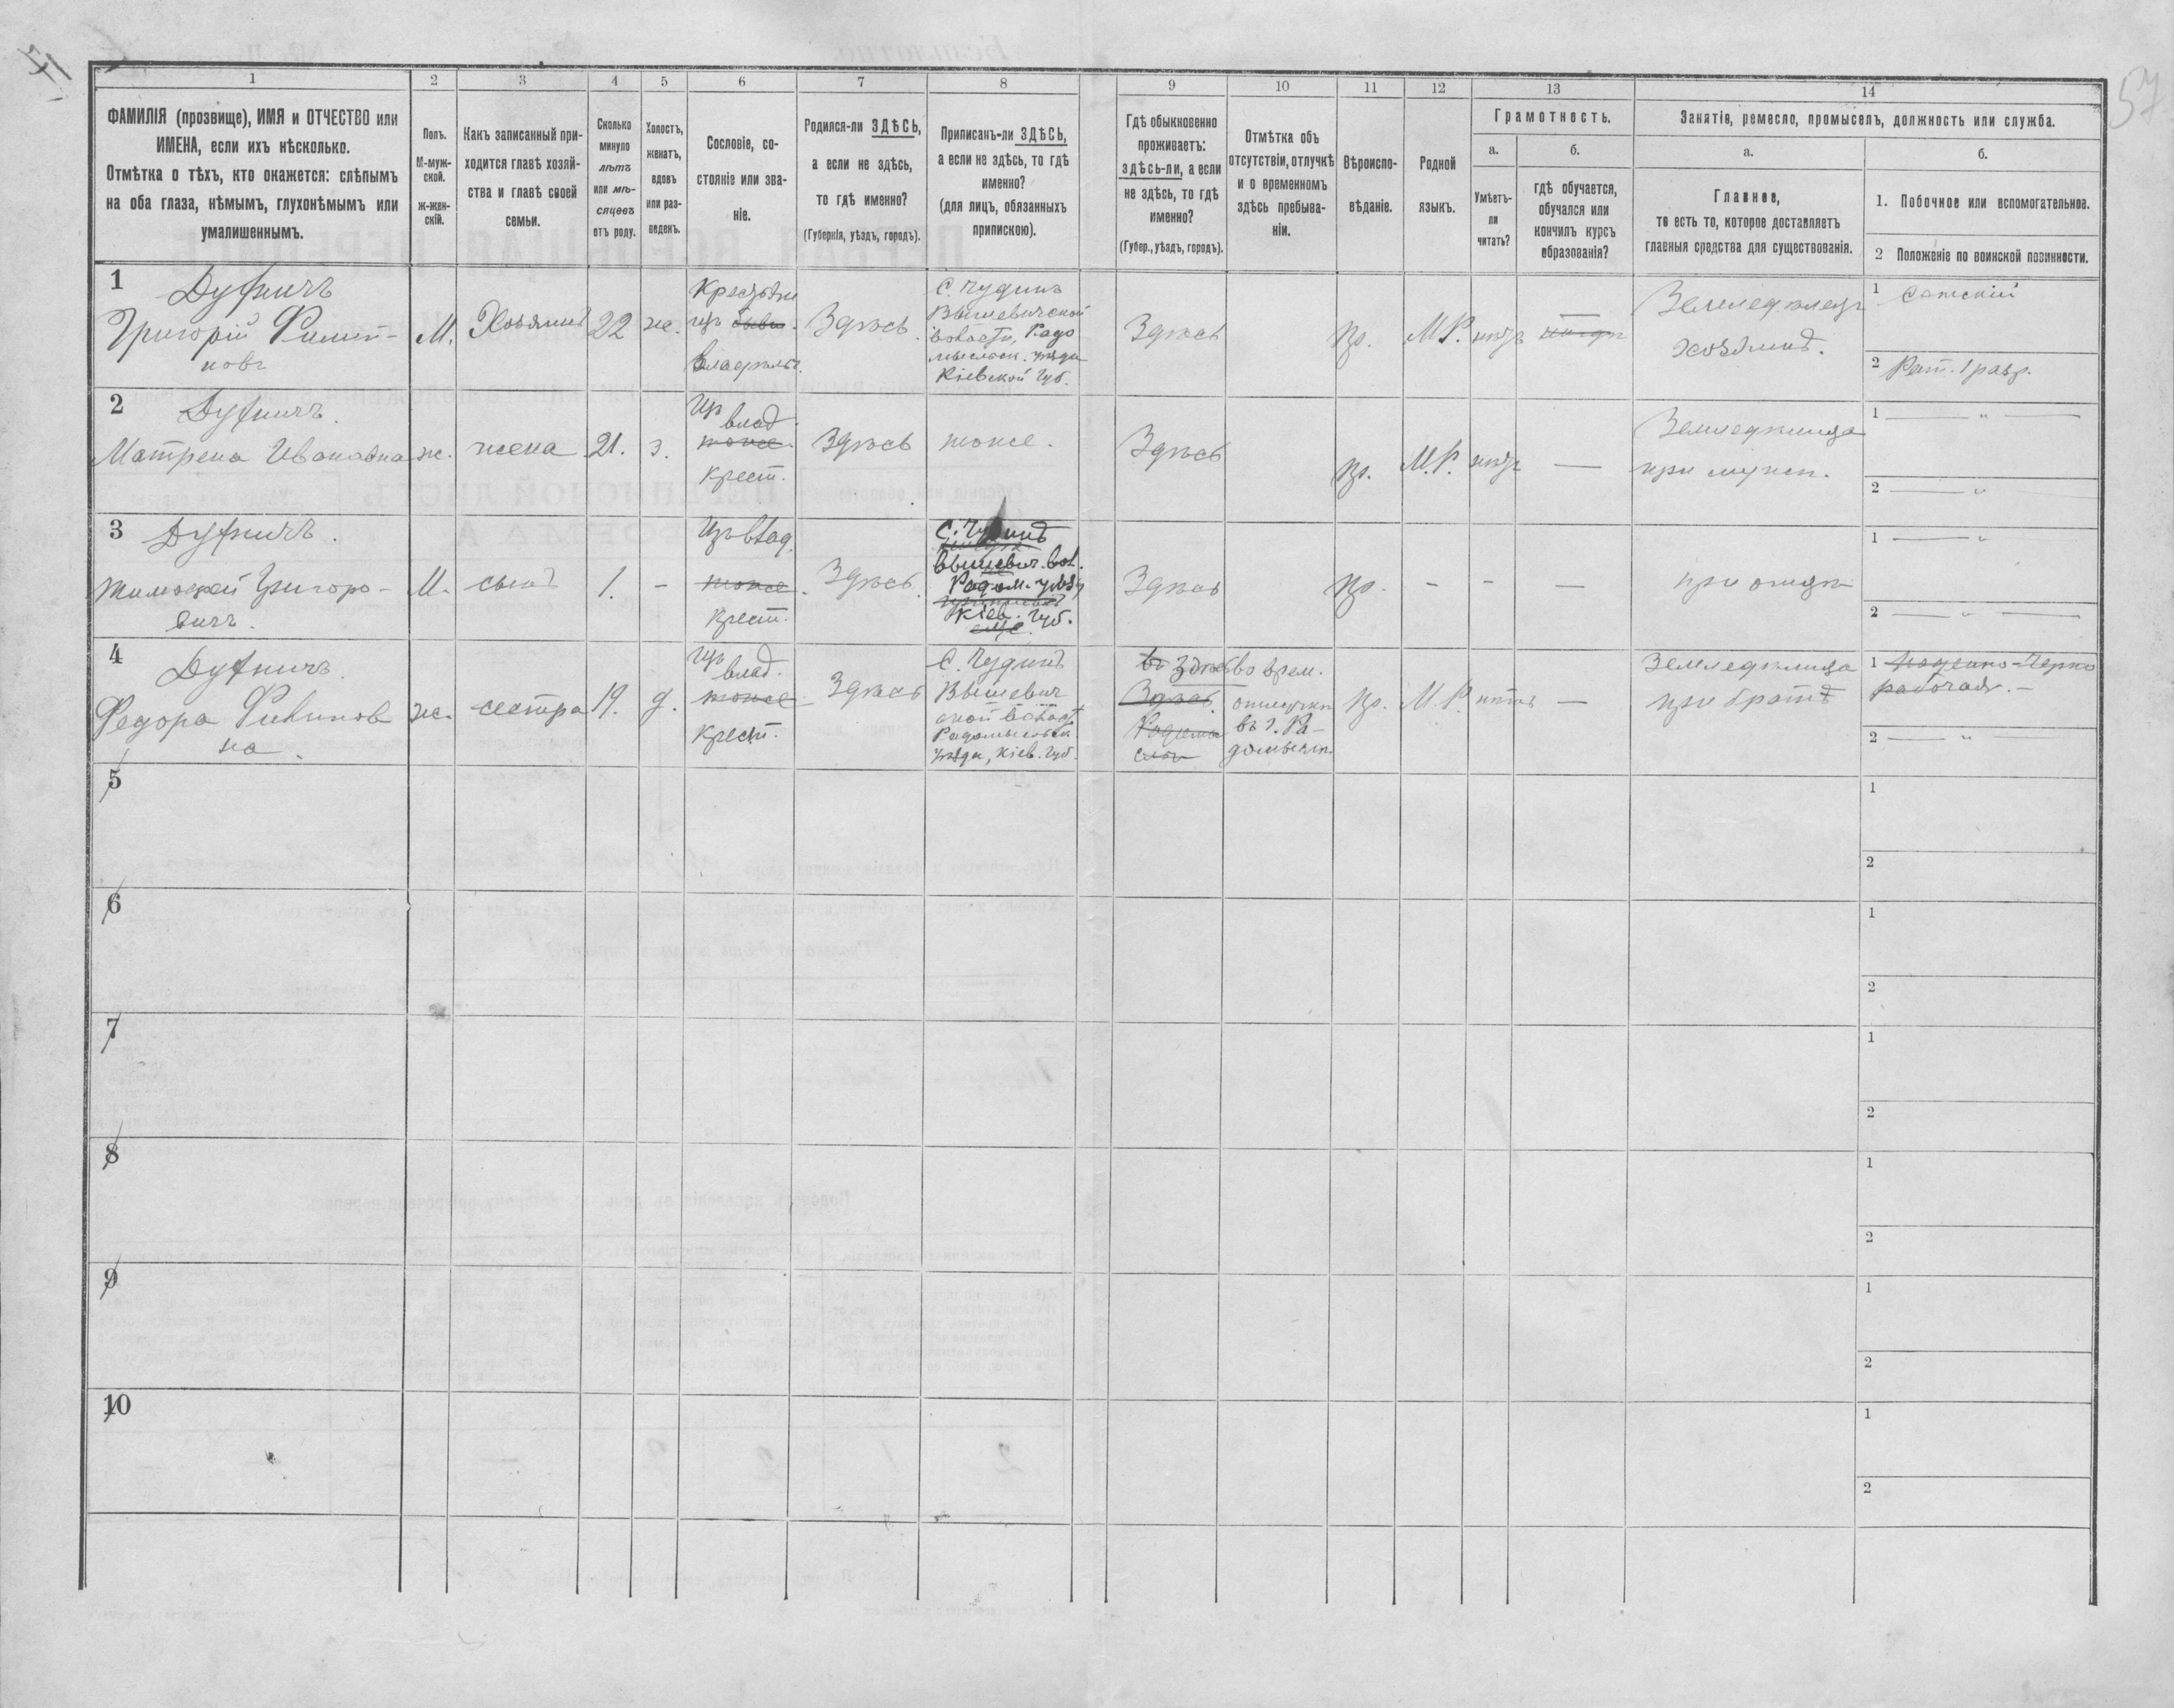 57
1
2
3
4
5
6
7
8
9
10
11
12
13
14
ФАМИЛІЯ (прозвище), ИМЯ и ОТЧЕСТВО или
ИМЕНА, если ихъ нѣсколько.
Отмѣтка о тѣхъ, кто окажется: слѣпымъ
на оба глаза, нѣмымъ, глухонѣмымъ или
умалишеннымъ.
Полъ.
М-муж-
ской.
Ж-жен-
скій.
Какъ записанный при-
ходится главѣ хозяй-
ства и главѣ своей
семьи.
Сколько
минуло
лѣтъ
или мѣ-
сяцевъ
отъ роду.
Холостъ,
женатъ,
вдовъ
или раз-
веденъ.
Сословіе, со-
стояніе или зва-
ніе.
Родился-ли ЗДѢСЬ,
а если не здѣсь,
то гдѣ именно?
(Губернія, уѣздъ, городъ).
Приписанъ-ли ЗДѢСЬ,
а если не здѣсь, то гдѣ
именно?
(для лицъ, обязанныхъ
припискою).
Гдѣ обыкновенно
проживаетъ:
здѣсь-ли, а если
не здѣсь, то гдѣ
именно?
(Губер., уѣздъ, городъ).
Отмѣтка объ
отсутствіи, отлучкѣ
и о временномъ
здѣсь пребыва-
ніи.
Вѣроиспо-
вѣданіе.
Родной
языкъ.
Грамотность.
а.
Умѣетъ-
ли
читать?
б.
гдѣ обучается,
обучался или
кончилъ курсъ
образованія?
Занятіе, ремесло, промыселъ, должность или служба.
а.
Главное,
то есть то, которое доставляетъ
главныя средства для существованія.
б.
1. Побочное или вспомогательное.
2 Положеніе по воинской повинности.
1
Григорій
М.
Хозяинъ
22
ж.
Здѣсь.
С. Чудинъ
Вышевичской
волости, Радо
мысльск. уѣзда
Кіевской Губ.
Здѣсь
пр.
М.Р.
нѣтъ
—
Земледѣлецъ
хозяинъ.
1 Сотскій
2 Рат. 1 разр.
2
Матрена Ивановна
ж.
жена
21.
з.
Изъ
влад.
тоже.
крест.
Здѣсь
тоже.
Здѣсь
пр.
М.Р.
нѣтъ
—
Земледѣлица
при мужѣ.
1 — " —
2 — "
3
Тимофей Григоро-
вичъ.
М.
сынъ
1.
-
Изъ влад.
тоже.
крест.
Здѣсь.
С. Чудинъ
Вышевич. вол.
Радом. уѣзд
Кіев. Губ.
Здѣсь
пр.
-
-
—
при отцѣ
1 — "
2 — " —
4
ж.
сестра
19.
д.
Изъ
влад.
тоже
крест.
Здѣсь
С. Чудинъ
Вышевич
ской волост
Радомысльск.
уѣзда, Кіев. Губ.
Здѣсь
во врем.
отлучкѣ
въ г. Ра-
домыслѣ.
пр.
М.Р.
нѣтъ
—
Земледѣлица
при братѣ
1
рабочая. –
2 — " —
5
1
2
6
1
2
7
1
2
8
1
2
9
1
2
10
1
2